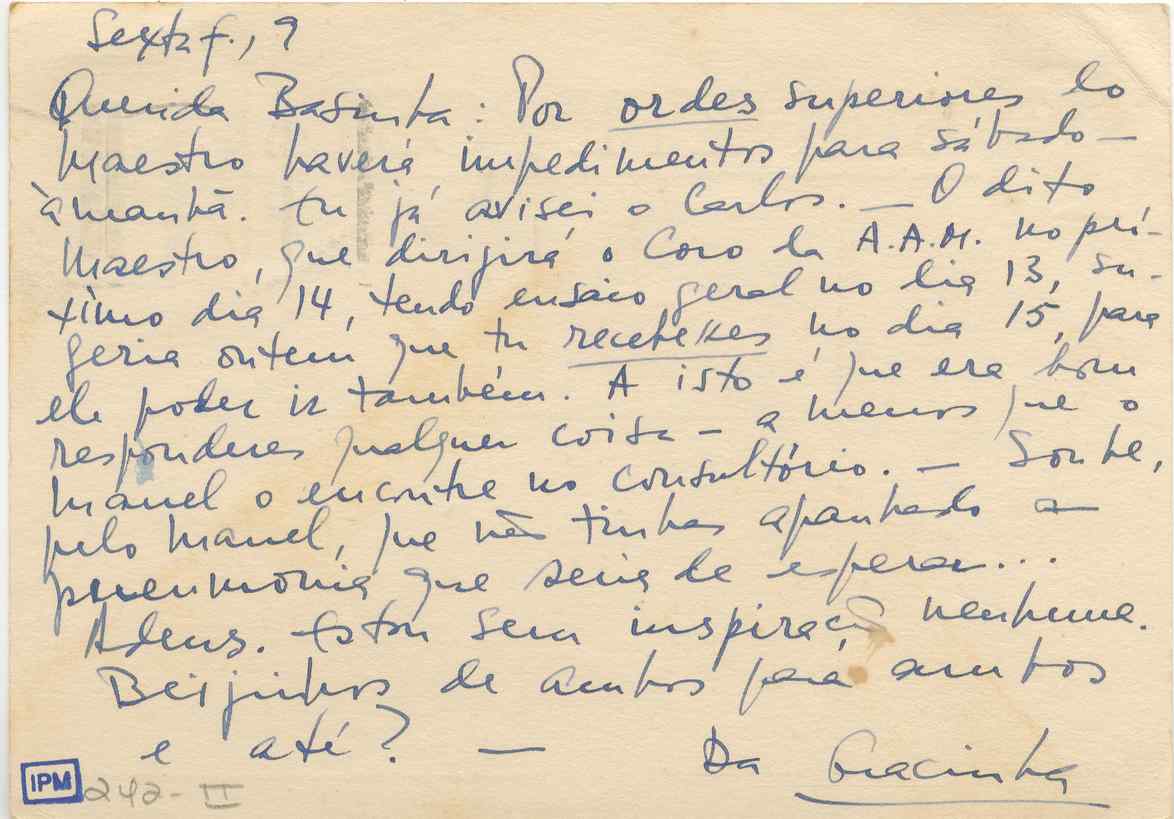 Sexta f., 9
Querida Basinha: Por ordes superiores do
Maestro haverá impedimentos para sábado –
àmanhã. Eu já avisei o Carlos. – O dito
Maestro, que dirigirá o Coro da A.A.M. no pró-
ximo dia 14, tendo ensaio geral no dia 13, su-
geria ontem que tu recebesses no dia 15, para
ele poder ir também. A isto é que era bom
responderes qualquer coisa – a menos que o
Manel o encontre no consultório. – Soube,
pelo Manel, que não tinhas apanhado a
pneumonia que seria de esperar...
Adeus. Estou sem inspiração nenhuma.
Beijinhos de ambos para ambos
e até? –
Da Gracinha
IPM
242-II